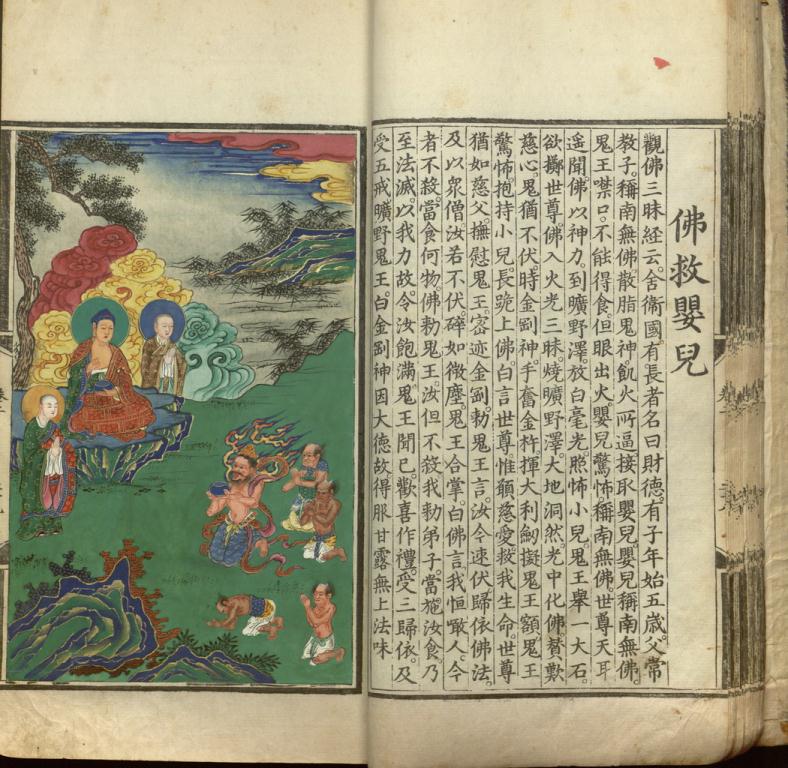 佛救嬰兒
觀佛三昧經云。舍衛國有長者名曰財德。有子年始五歲。父常
教子。稱南無佛。散脂鬼神飢火所逼接取嬰兒。嬰兒稱南無佛。
鬼王噤口。不能得食。但眼出火嬰兒驚怖。稱南無佛。世尊天耳
遥聞。佛以神力。到曠野澤。放白毫光。照怖小兒。鬼王舉一大石。
欲擲世尊。佛入火光三昧。燒曠野澤。大地洞然。光中化佛。替歎
慈心。鬼猶不伏。時金剛神。手奮金杵。揮大利劒。擬鬼王額。鬼王
驚怖。抱持小兒。長跪上佛。白言世尊。惟願慈愛。救我生命。世尊
猶如慈父。撫慰鬼王。密迹金剛。勑鬼王言。汝今速伏歸依佛法
及以眾僧。汝若不伏。碎如微塵。鬼王合掌。白佛言。我恒噉人。今
者不殺。當食何物。佛勑鬼王。汝但不殺。我勑弟子。當施汝食。乃
至法滅。以我力故。令汝飽滿。鬼王聞已。歡喜作禮。受三歸依。及
受五戒。曠野鬼王。白金剛神。因大德故。得服甘露無上法味